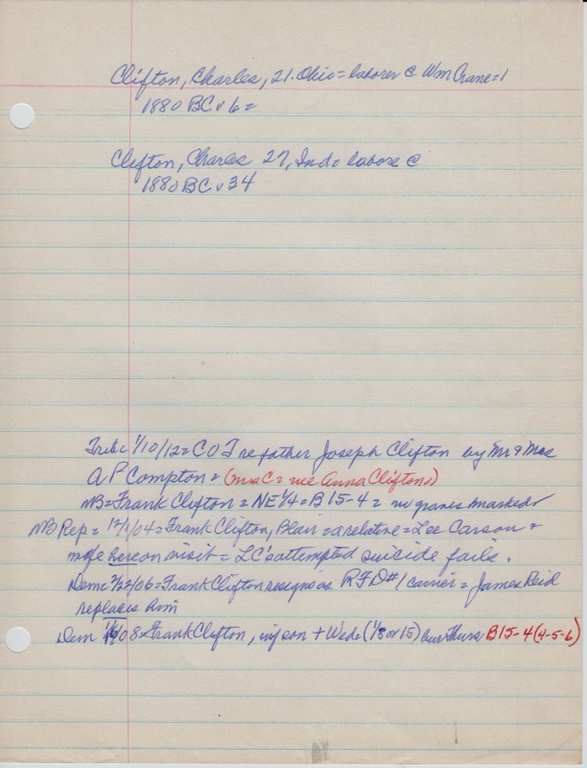 Clifton, Charles, 21. Ohio = laborer @ Wm Crane = 1
1880 BC v 6 =
Clifton, Charles 27, Ind = labore @
1880 BC v 34
Trib = 1/10/12 = C O T re father Joseph Clifton by Mr & Mrs
A P Compton = (Mrs C = nee Anna Clifton)
NB = Frank Clifton = NE 1/4 = B 15-4 = no graves marked
NB Rep = 1904 = Frank Clifton, = a relative = Lee Carson &
wife here on visit = LC's attempted suicide fails.
Dem = /06 = Frank Clifton resigns as RFD #1 carrier = James Reid
replaces him
Dem 08 = Frank Clifton, + Weds (1/8 or 15) bur Thurs B 15-4 (4-5-6)